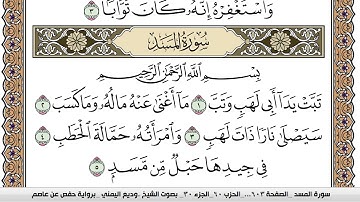 وَٱسْتَغْفِرْهُ إِنَّهُۥ كَانَ تَوَّابًۢا ٣
سُورَةُ المَسَدِ
بِسْمِ ٱللَّهِ ٱلرَّحْمَٰنِ ٱلرَّحِيمِ
تَبَّتْ يَدَآ أَبِى لَهَبٍ وَتَبَّ ١ مَآ أَغْنَىٰ عَنْهُ مَالُهُۥ وَمَا كَسَبَ ٢
سَيَصْلَىٰ نَارًا ذَاتَ لَهَبٍ ٣ وَٱمْرَأَتُهُۥ حَمَّالَةَ ٱلْحَطَبِ ٤
فِى جِيدِهَا حَبْلٌ مِّن مَّسَدٍۭ ٥
سورة المسد _الصفحة ٦٠٣_... الحزب ٦٠_ الجزء ٣٠_ بصوت الشيخ _وديع اليمني _برواية حفص عن عاصم